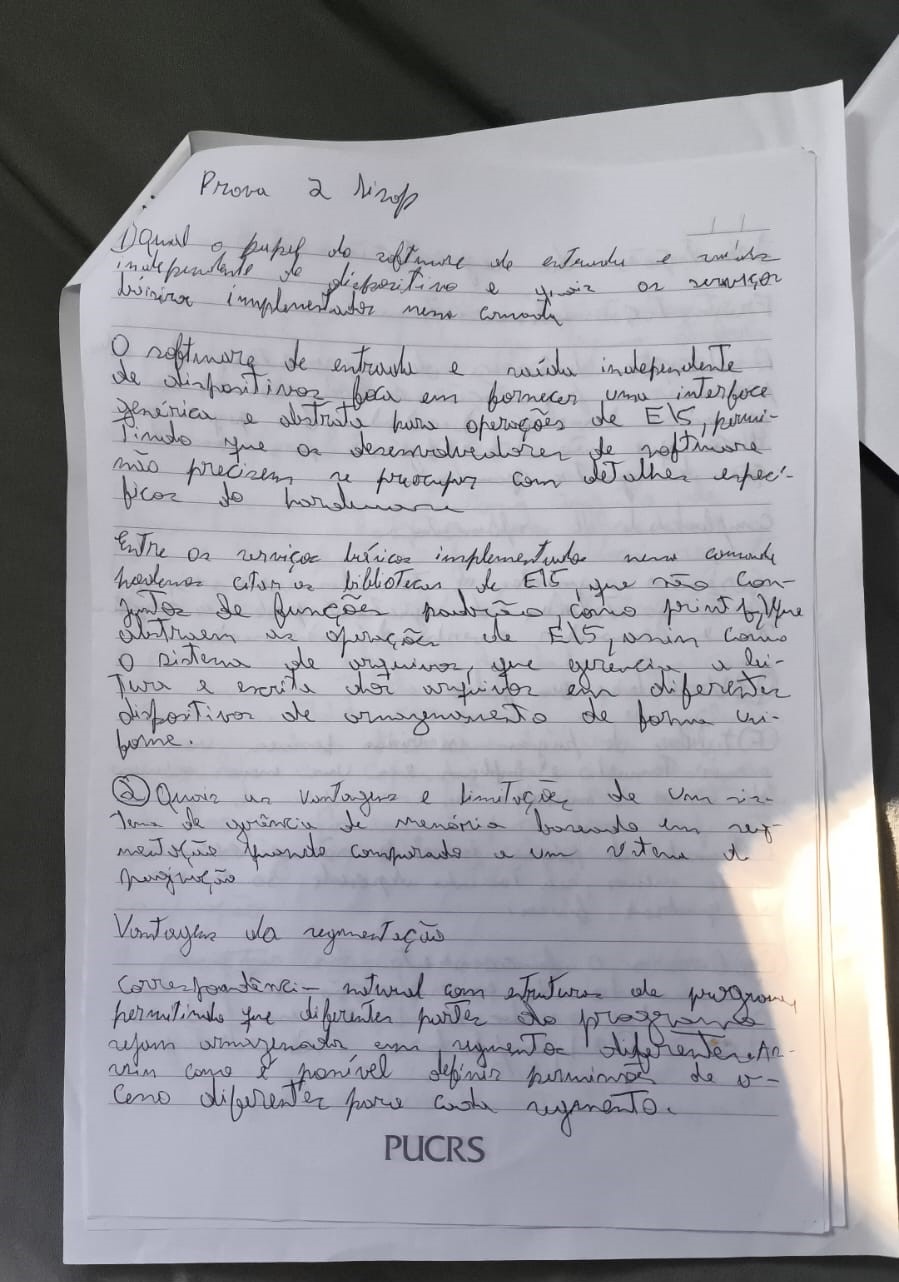 Prova 2 Sisop
1) Qual o papel do software de entrada e saída
independente de dispositivo e quais os serviços
básicos implementados nessa camada
O software de entrada e saída independente
de dispositivos foca em fornecer uma interface
genérica e abstrata para operações de E\S, permi-
tindo que os desenvolvedores de software
não precisem se preocupar com detalhes especí-
ficos do hardware
Entre os serviços básicos implementados nessa camada
podemos citar as bibliotecas de E\S, que são con-
juntos de funções padrão, como printf, que
abstraem as operações de E\S, assim como
o sistema de arquivos, que gerencia a lei-
tura e escrita dos arquivos em diferentes
dispositivos de armazenamento de forma uni-
forme.
2) Quais as vantagens e limitações de um sis-
tema de gerência de memória baseado em seg-
mentação quando comparado a um sistema de
paginação
Vantagens da segmentação
Correspondência natural com estruturas de programa,
permitindo que diferentes partes do programa
sejam armazenadas em segmentos diferentes. As-
sim como é possível definir permissões de a-
cesso diferentes para cada segmento.
PUCRS